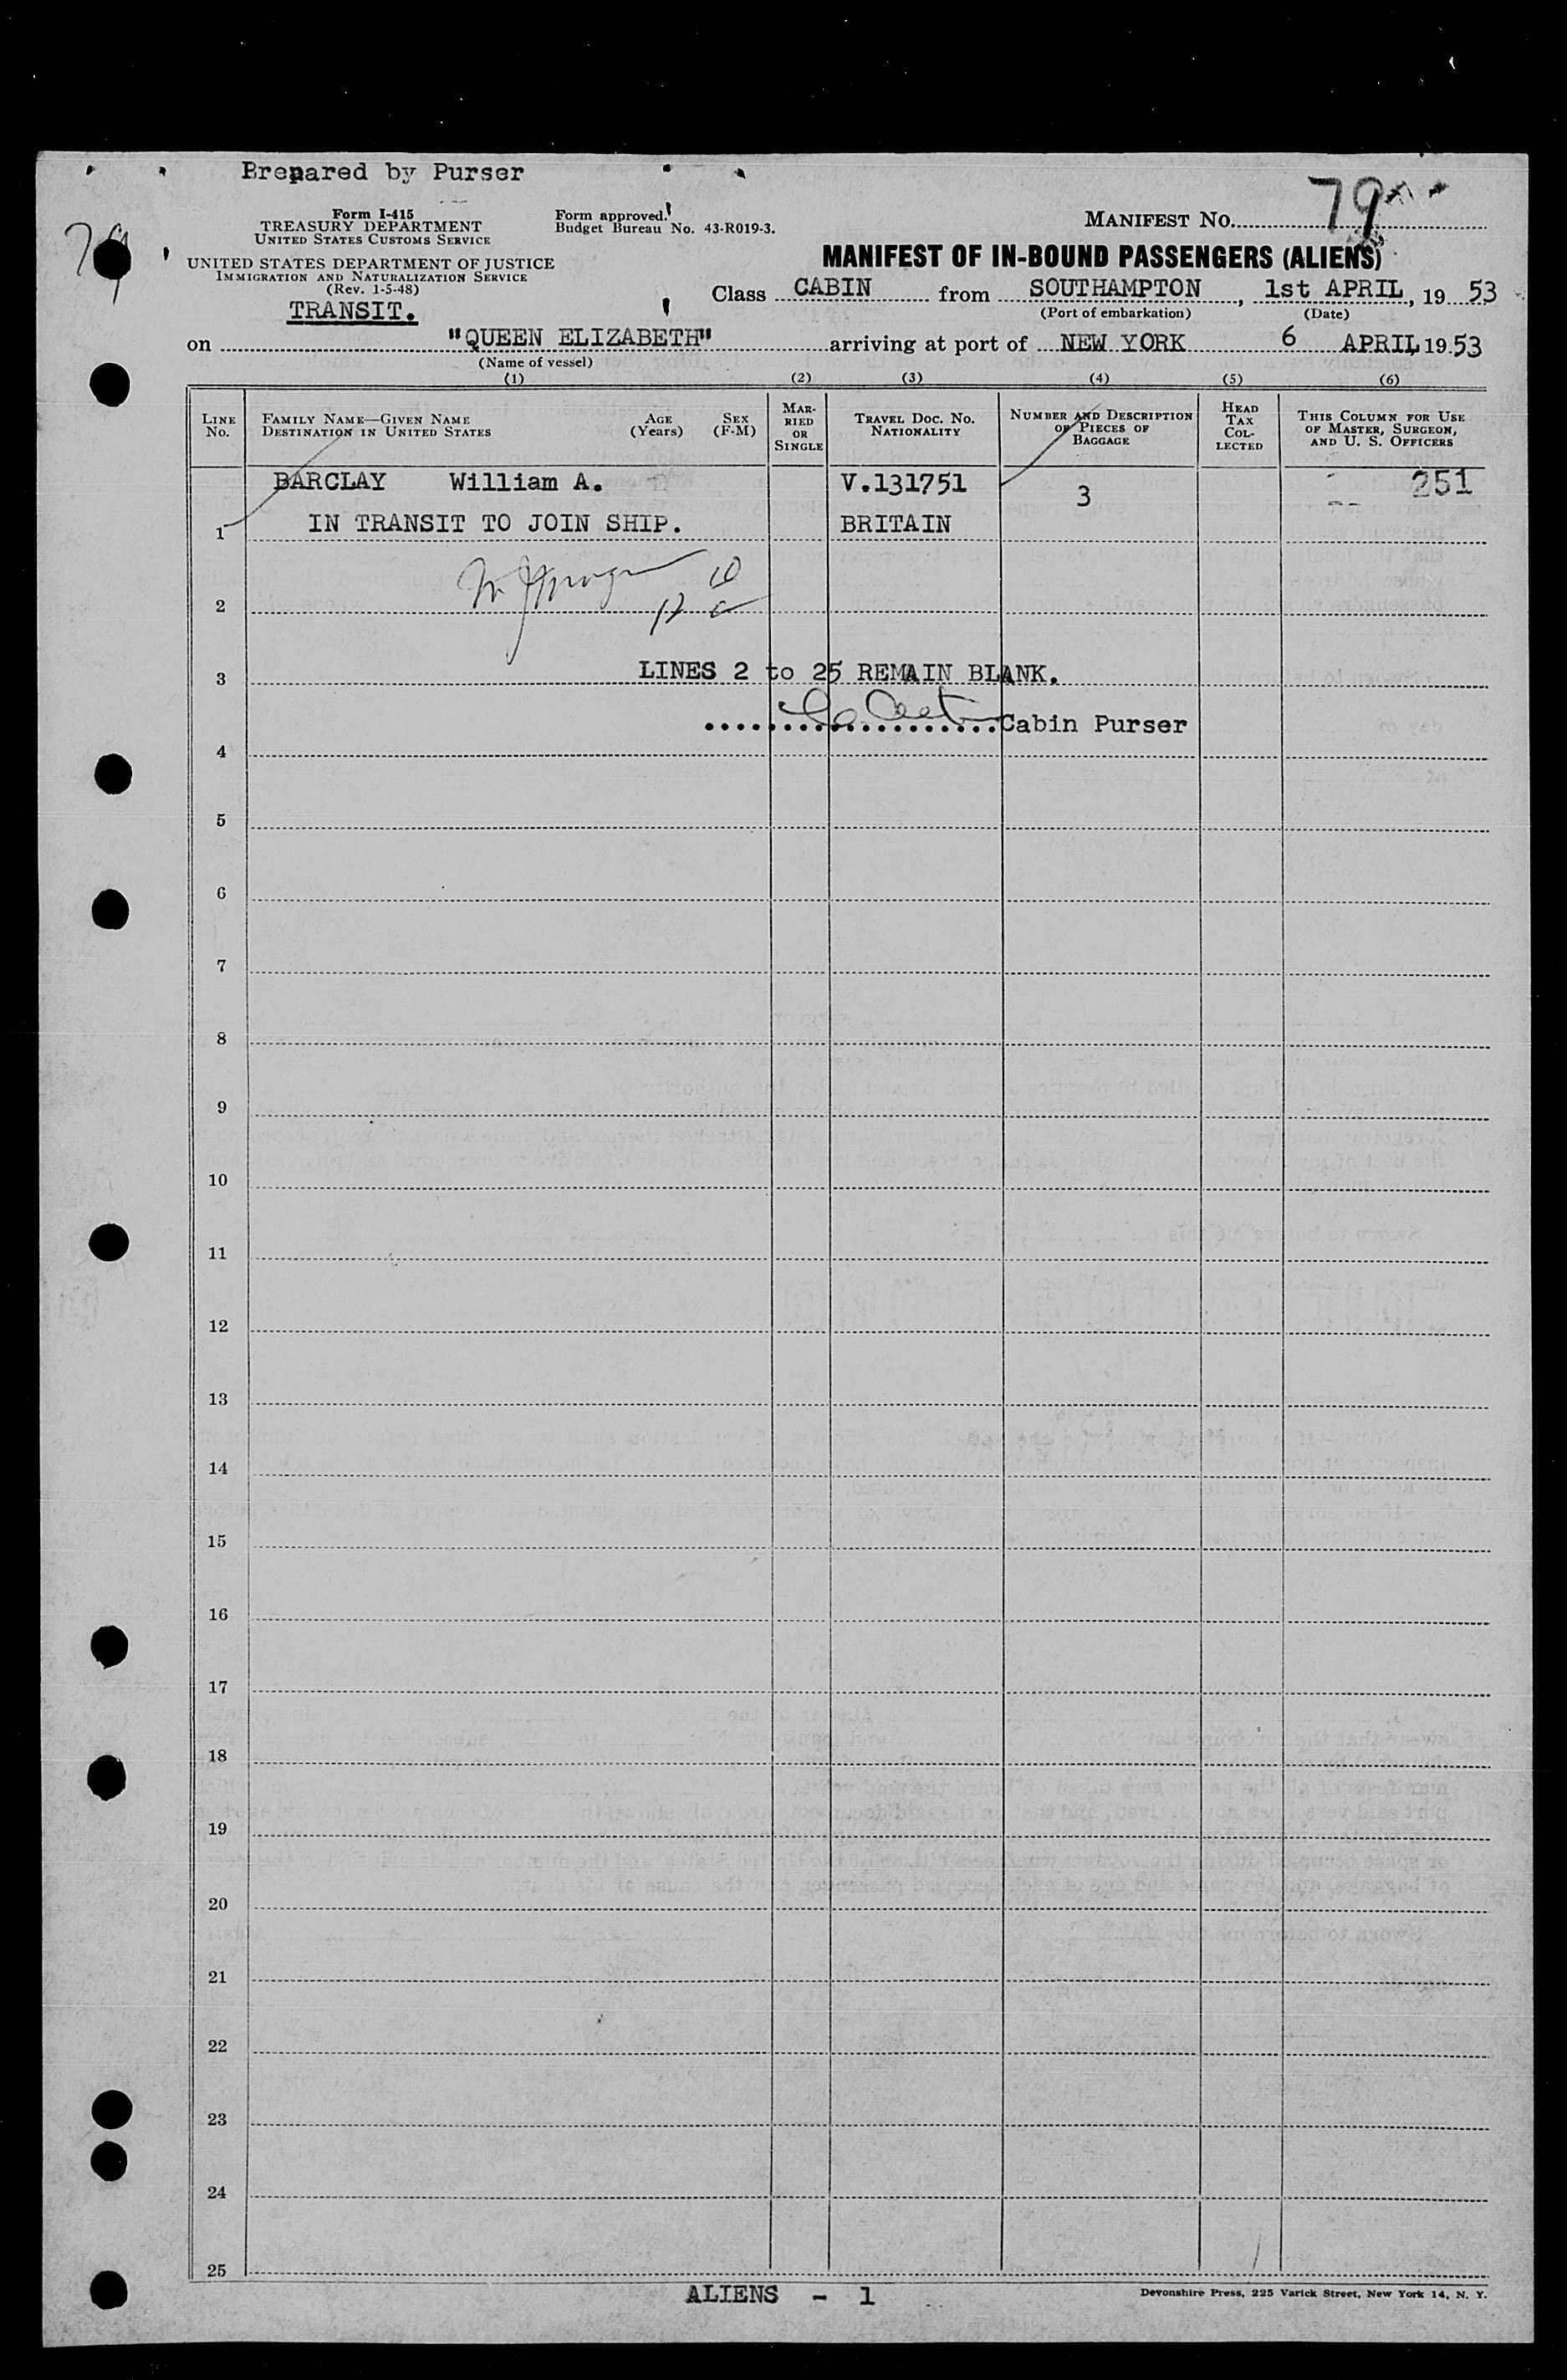 Prepared by Purser
Form I-415
TREASURY DEPARTMENT
UNITED STATES CUSTOMS SERVICE
UNITED STATES DEPARTMENT OF JUSTICE
IMMIGRATION AND NATURALIZATION SERVICE
(Rev. 1-5-48)
TRANSIT.
Form approved.
Budget Bureau No. 43-R019-3.
79
MANIFEST NO. 79
MANIFEST OF IN-BOUND PASSENGERS (ALIENS)
Class CABIN from SOUTHAMPTON, 1st APRIL, 1953
(Port of embarkation) (Date)
on "QUEEN ELIZABETH" arriving at port of NEW YORK 6 APRIL, 1953
(Name of vessel)
(1) (2) (3) (4) (5) (6)
LINE NO.
FAMILY NAME—GIVEN NAME
DESTINATION IN UNITED STATES
AGE (Years)
SEX (F-M)
MARRIED OR SINGLE
TRAVEL DOC. NO.
NATIONALITY
NUMBER AND DESCRIPTION
OF PIECES OF
BAGGAGE
HEAD
TAX
COL-
LECTED
THIS COLUMN FOR USE
OF MASTER, SURGEON,
AND U. S. OFFICERS
BARCLAY William A. V.131751 3 251
1 IN TRANSIT TO JOIN SHIP. BRITAIN
2
3 LINES 2 to 25 REMAIN BLANK.
Cabin Purser
4
5
6
7
8
9
10
11
12
13
14
15
16
17
18
19
20
21
22
23
24
25
ALIENS - 1
Devonshire Press, 225 Varick Street, New York 14, N. Y.